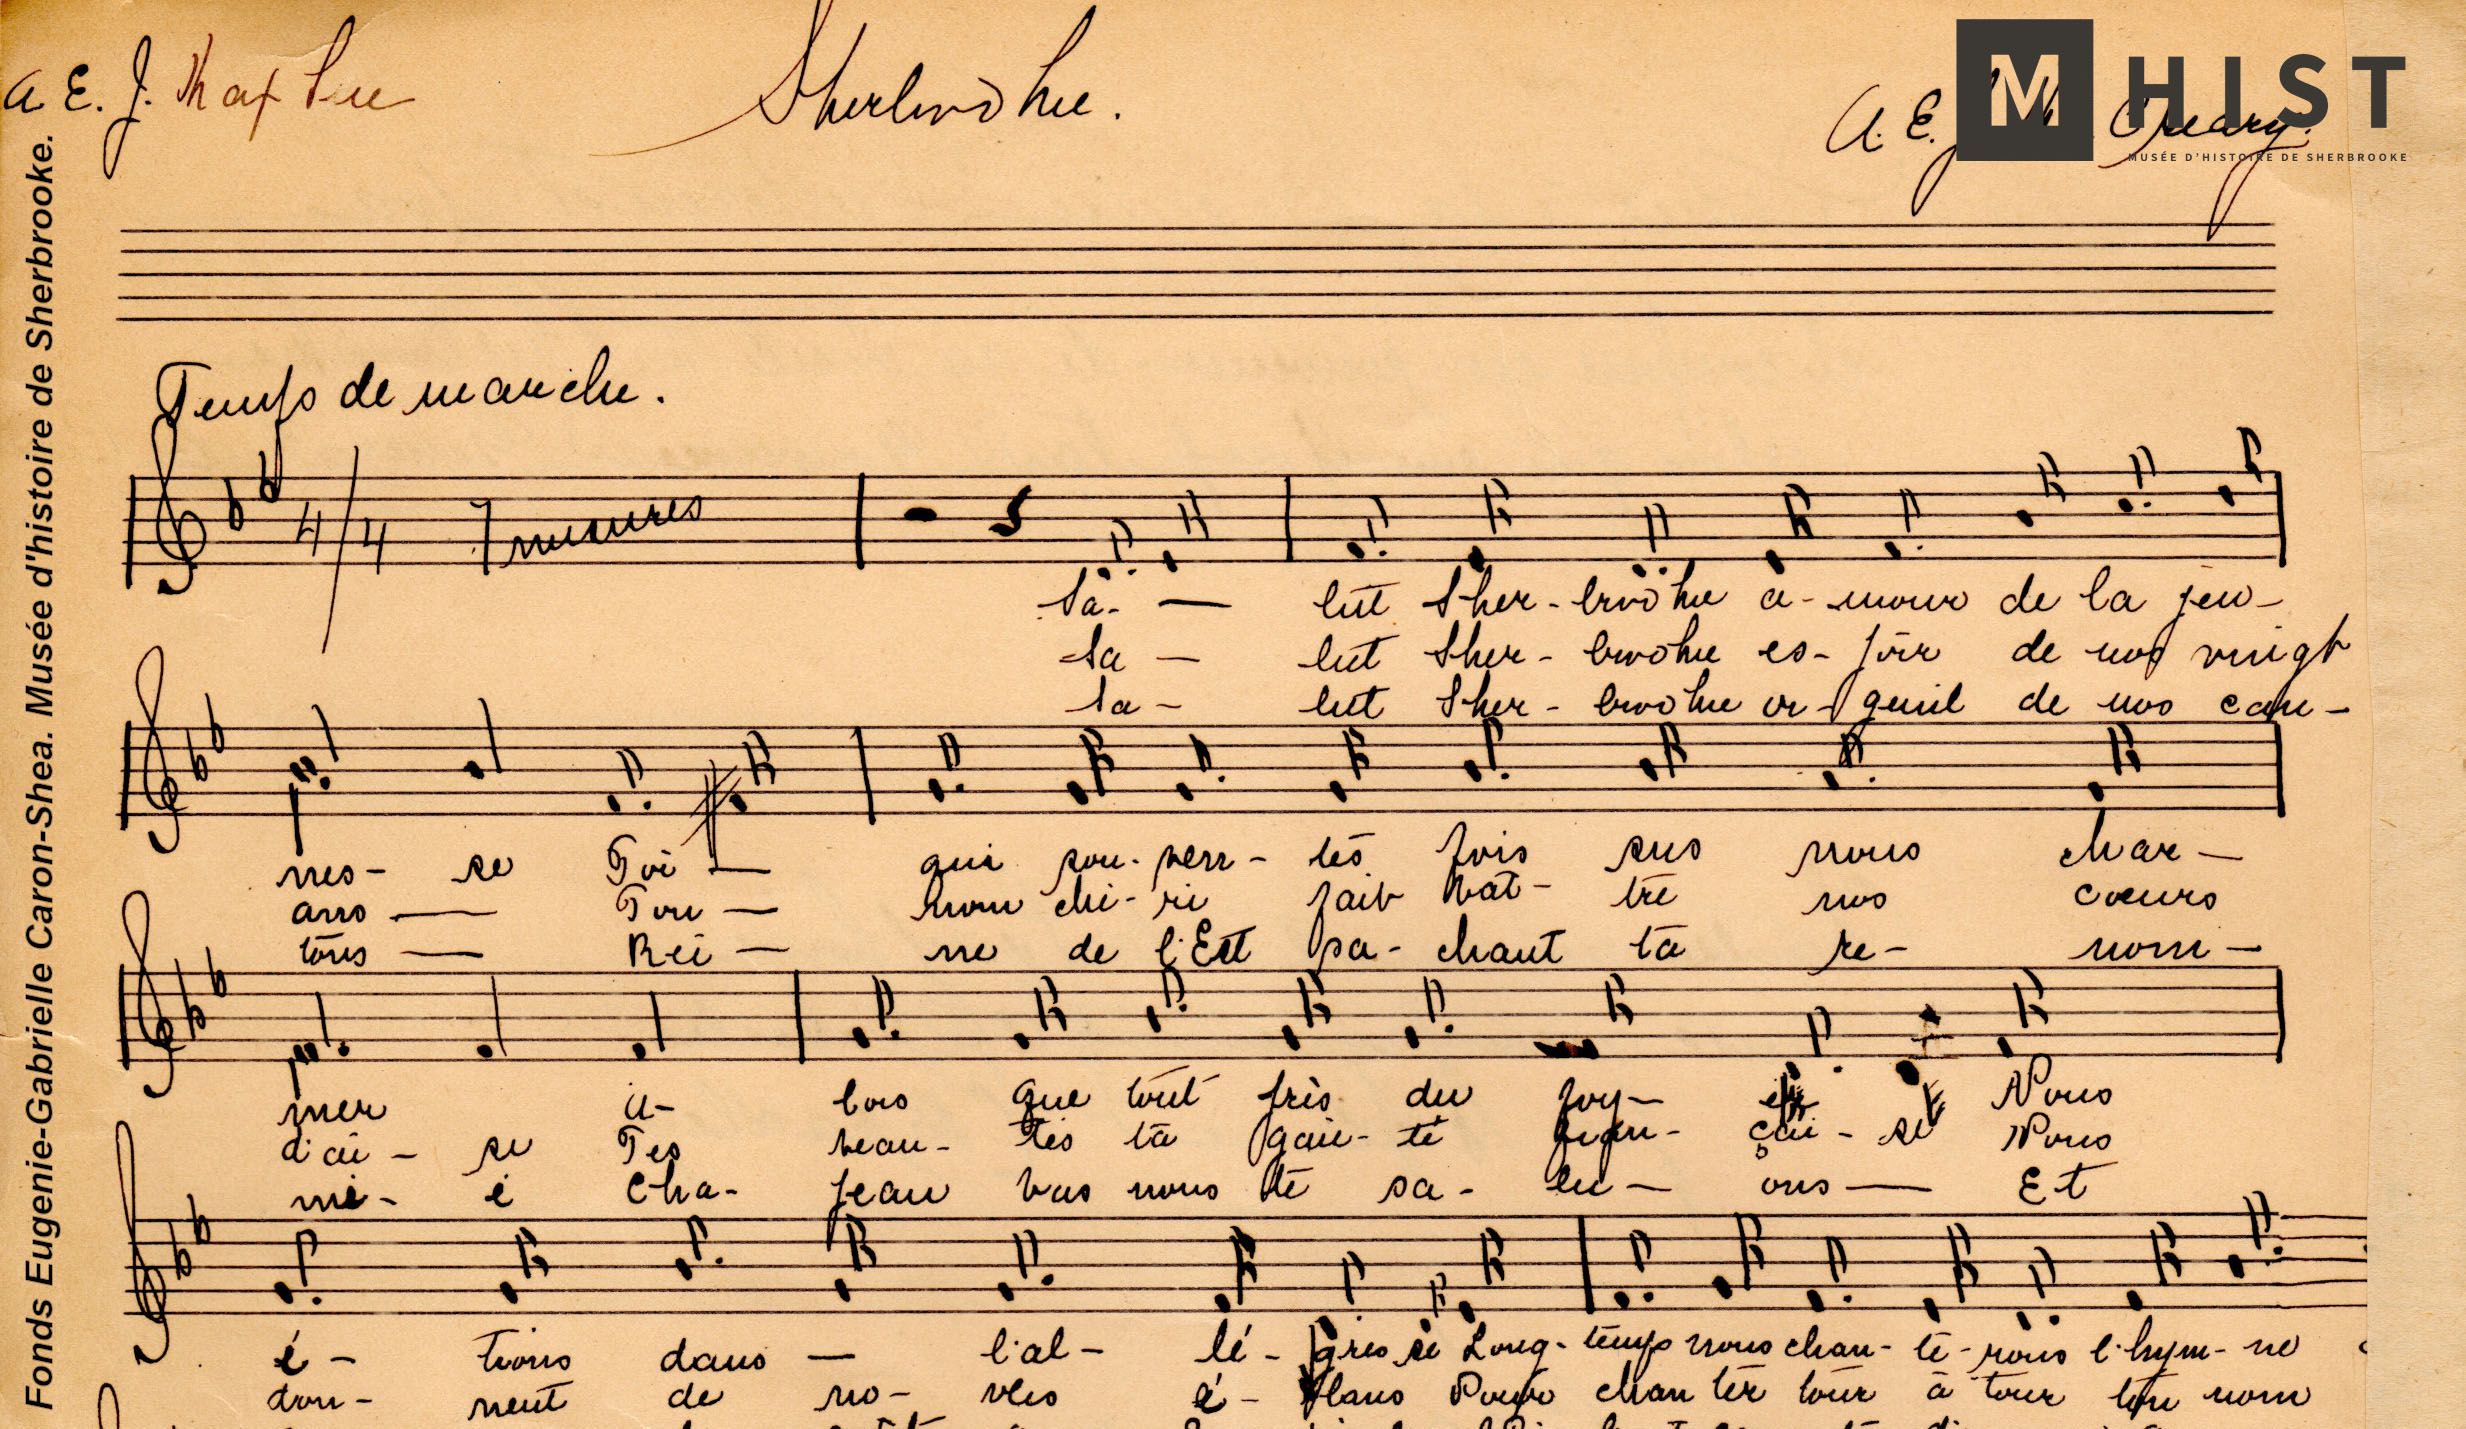 A. E. J.
Sherbrooke.
A. E.
M HIST
MUSÉE D'HISTOIRE DE SHERBROOKE
Fonds Eugenie-Gabrielle Caron-Shea. Musée d'histoire de Sherbrooke.
Temps de marche.
4/4 7 mesures
Sa- — lut Sher- brooke a- mour de la jeu-
Sa — lut Sher- brooke es- poir de nos vingt
Sa- lut Sher- brooke or- gueil de nos can-
nes- se Toi — qui sou- ven- tes fois sus nous char-
ans — Ton — nom ché- ri fait bat- tre nos coeurs
tons — Rei — ne de l'Est sa- chant ta re- nom-
mer a- lors que tout près du Nous
d'ai- se Tes beau- tés ta gaie- té fran- çai- se Nous
mé- e Cha- peau bas nous te sa- lu- ons — Et
é- tions dans — l'al- lé- gres se Long- temps nous chan- te- rons l'hym- ne
don- nent de no- bles é- lans Pour chan ter tour à tour ton nom